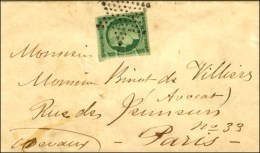 Monsieur
Monsieur Binot de Villiers
(Avocat)
Rue des Jeuneurs
No 33
Paris